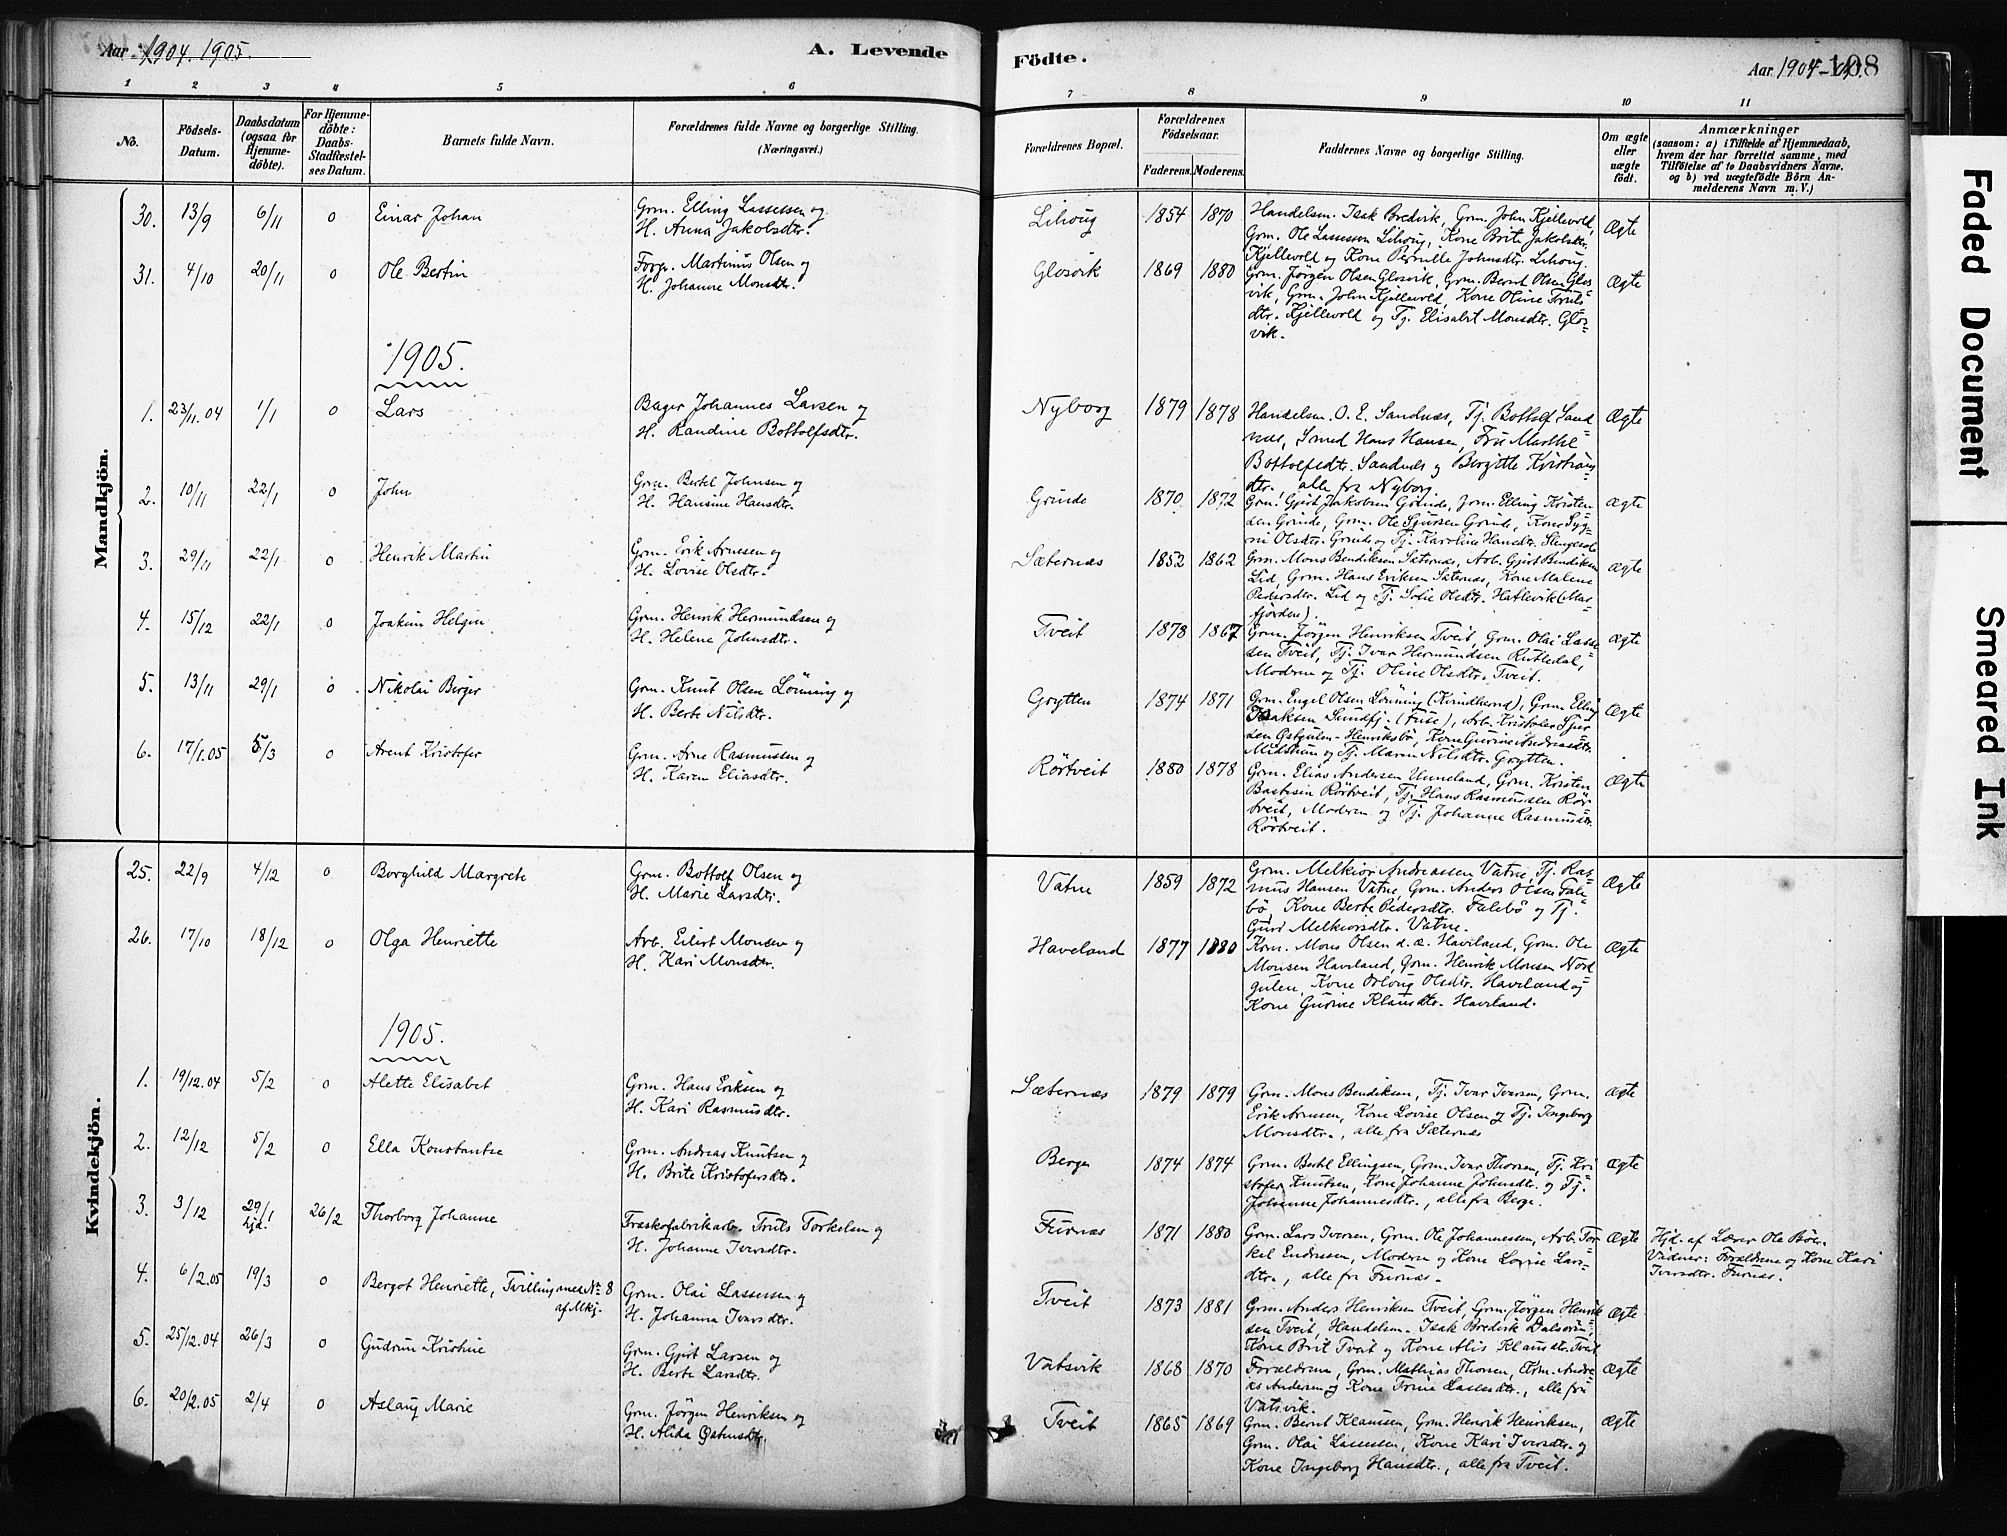 Aar 1904. 1905.
A. Levende
Födte.
Aar 1904-
108
1 2 3 4 5 6 7 8 9 10 11
No.
Födsels-
Datum.
Daabsdatum
(ogsaa for
Hjemme-
döbte).
For Hjemme-
döbte:
Daabs-
Stadfæstel-
ses Datum.
Barnets fulde Navn.
Forældrenes fulde Navne og borgerlige Stilling.
(Næringsvei.)
Forældrenes Bopæl.
Forældrenes
Födselsaar.
Faderens. Moderens.
Faddernes Navne og borgerlige Stilling.
Om ægte
eller
uægte
født.
Anmærkninger
(saasom: a) i Tilfælde af Hjemmedaab,
hvem der har forrettet samme, med
Tilföielse af to Daabsvidners Navne,
og b) ved uægtefödte Börn An-
melderens Navn m. V.)
Mandkjön.
30. 13/9 6/11 0 Einar Johan
Grm. Elling Lassessen og
H. Anna Jakobsdtr.
Lihoug 1854 1870
Handelsm. Isak Bredvik, Grm. John Kjellevold,
Grm. Ole Lassessen Lihoug, Kone Brite Jakobsdtr.
Kjellevold og Kone Pernille Johnsdtr. Lihoug.
Ægte
31. 4/10 20/11 0 Ole Bertin
Forpr. Martinus Olsen og
H. Johanne Monsdtr.
Glosvik 1869 1880
Grm. Jörgen Olsen Glosvik, Grm. Bernt Olsen Glos
vik, Grm. John Kjellevold, Kone Oline Truls
dtr. Kjellevold og Tj. Elisabet Monsdtr. Glos-
vik.
Ægte
1905.
1. 23/11.04 1/1 0 Lars
Bager Johannes Larsen og
H. Randine Bottolfsdtr.
Nyborg 1879 1878
Handelsm. O. E. Sandnæs, Tj. Bottolf Sand
næs, Smed Hans Hansen, Fru Marthe
Bottolfsdtr. Sandnæs og Bergitte Kristians
dtr., alle fra Nyborg
Ægte
2. 10/11 22/1 0 John
Grm. Bertel Johnsen og
H. Hansine Hansdtr.
Grinde 1870 1872
Grm. Gjert Jakobsen Grinde, Grm. Elling Kristen
sen Grinde, Grm. Ole Sjursen Grinde, Kone Syg-
ni Olsdtr. Grinde og Tj. Karoline Hansdtr.
Ægte
3. 29/11 22/1 0 Henrik Martin
Grm. Erik Arnesen og
H. Lovise Olsdtr.
Sæternæs 1852 1862
Grm. Mons Bendiksen Sæternæs, Arb. Gjert Bendiksen
Lid, Grm. Hans Eriksen Sæternæs, Kone Malene
Pedersdtr. Lid og Tj. Sofie Olsdtr. Hatlevik (Mas-
fjorden).
Ægte
4. 15/12 22/1 0 Joakim Helgin
Grm. Henrik Hermundsen og
H. Helene Johnsdtr.
Tveit 1878 1867
Grm. Jörgen Henriksen Tveit, Grm. Olai Lasse
sen Tveit, Tj. Ivar Hermundsen Rutledal,
Moderen og Tj. Oline Olsdtr. Tveit.
Ægte
5. 13/11 29/1 0 Nikolai Berger
Grm. Knut Olsen Lönning og
H. Berte Nilsdtr.
Grytten 1874 1871
Grm. Engel Olsen Lönning (Kvindherred), Grm. Elling
Isaksen Sundfj. (Fuse), Arb. Kristofer Sjur
sen Østgulen - Henriksbö, Kone Gurine Andreasdtr.
Midttun og Tj. Marie Nilsdtr. Grytten.
Ægte
6. 17/1.05 5/3 0 Arent Kristofer
Grm. Arne Rasmussen og
H. Karen Eliasdtr.
Rörtveit 1880 1878
Grm. Elias Andersen Unneland, Grm. Kristen
Bastesen Rörtveit, Tj. Hans Rasmussen Rör
tveit, Moderen og Tj. Johanne Rasmusdtr.
Rörtveit.
Ægte
Kvindekjön.
25. 22/9 4/12 0 Borghild Margrete
Grm. Bottolf Olsen og
H. Marie Larsdtr.
Vatne 1859 1872
Grm. Melkior Andreassen Vatne, Tj. Ras
mus Hansen Vatne, Grm. Anders Olsen Fale
bö, Kone Berte Pedersdtr. Falebö og Tj.
Guri Melkiorsdtr. Vatne.
Ægte
26. 17/10 18/12 0 Olga Henriette
Arb. Eilert Monsen og
H. Kari Monsdtr.
Haveland 1877 1880
Krm. Mons Olsen d.æ. Haveland, Grm. Ole
Monsen Haveland, Grm. Henrik Monsen Nord
gulen, Kone Orloug Olsdtr. Haveland og
Kone Gurine Klausdtr. Haveland.
Ægte
1905.
1. 19/12.04 5/2 0 Alette Elisabet
Grm. Hans Eriksen og
H. Kari Rasmusdtr.
Sæternæs 1879 1879
Grm. Mons Bendiksen, Tj. Ivar Ivarsen, Grm.
Erik Arnesen, Kone Lovise Olsen og Tj. Ingeborg
Monsdtr., alle fra Sæternæs
Ægte
2. 12/12 5/2 0 Ella Konstantse
Grm. Andreas Knutsen og
H. Brite Kristofersdtr.
Berge 1874 1874
Grm. Bertel Ellingsen, Grm. Ivar Thorsen, Tj. Kri
stofer Knutsen, Kone Johanne Johnsdtr. og Tj.
Johanne Johannesdtr., alle fra Berge.
Ægte
3. 3/12 29/1 hjd. 26/2 Thorborg Johanne
Træskofabrikarb. Truls Torkelsen og
H. Johanne Iversdtr.
Furnæs 1871 1880
Grm. Lars Iversen, Grm. Ole Johannessen, Arb. Tor
kel Endresen, Moderen og Kone Lovise Lars-
dtr., alle fra Furnæs.
Ægte
Hjd. af Lærer Ole Böe.
Vidner: Forældrene og Kone Kari
Iversdtr. Furnæs.
4. 6/2.05 19/3 0 Bergot Henriette, Tvilling med No 8
af Mkj.
Grm. Olai Lassessen og
H. Johanna Ivarsdtr.
Tveit 1873 1881
Grm. Anders Henriksen Tveit, Grm. Jörgen Henrik
sen Tveit, Handelsm. Isak Bredvik Dalsören,
Kone Brit Tveit og Kone Alis Klausdtr. Tveit
Ægte
5. 25/12.04 26/3 0 Gudrun Kristine
Grm. Gjert Larsen og
H. Berte Larsdtr.
Vatsvik 1868 1870
Forældrene, Grm. Mathias Thorsen, Krm. Andre
as Andersen og Kone Trine Lassesdtr., alle fra
Vatsvik.
Ægte
6. 20/2.05 2/4 0 Aslaug Marie
Grm. Jörgen Henriksen og
H. Alida Østensdtr.
Tveit 1865 1869
Grm. Bernt Klaussen, Grm. Henrik Henriksen,
Grm. Olai Lassessen, Kone Kari Iversdtr. og
Kone Ingeborg Hansdtr., alle fra Tveit.
Ægte
Faded Document
Smeared Ink